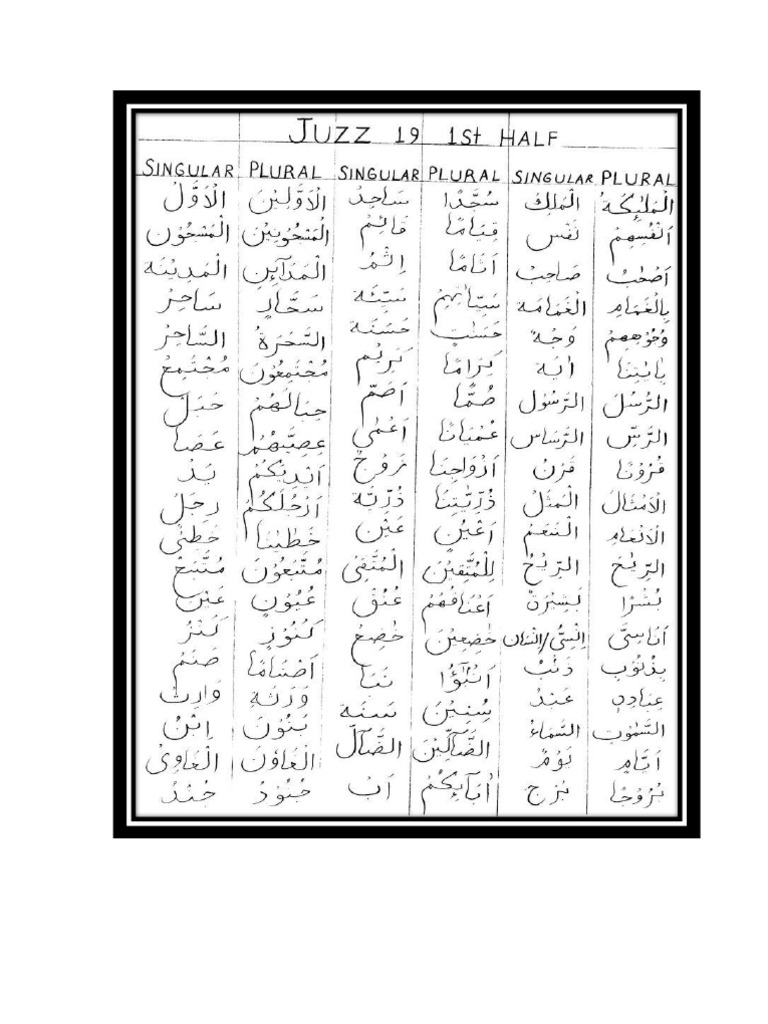 JUZZ 19 1St HALF
SINGULAR PLURAL SINGULAR PLURAL SINGULAR PLURAL
الْمَلٰٓئِكَةُ الْمَلِكُ سُجَّدًا سَاجِدٌ الْاَوَّلِيْنَ الْاَوَّلُ
اَنْفُسِهِمْ نَفْس قِيَامًا قَائِمٌ الْمَسْجُوْنِيْنَ الْمَسْجُوْن
اَصْحٰبُ صَاحِبُ اَثَامًا اِثْمٌ الْمَدَآئِنِ الْمَدِيْنَه
بِالْغَمَامِ الْغَمَامَه سَيِّاٰتِهِمْ سَيِّئَه سَحَّارٍ سَاحِرُ
وُجُوْهِهِمْ وَجْهٌ حَسَنٰتٍ حَسَنَه السَّحَرَةُ السَّاحِرُ
بِاٰيٰتِنَا اٰيَة كِرَامًا كَرِيْم مُجْتَمِعُوْنَ مُجْتَمِعُ
الرُّسُلَ الرَّسُوْل صُمًّا اَصَمّ حِبَالَهُمْ حَبَلُ
الرَّسِّ الرَّسَاس عُمْيَانًا اَعْمٰى عِصِيَّهُمْ عَصَا
قُرُوْنًا قَرْنُ اَزْوَاجِنَا زَوْجٌ اَيْدِيَكُمْ يَدُ
الْاَمْثَالَ الْمَثَلُ ذُرِّيّٰتِنَا ذُرِّيَّة اَرْجُلَكُمْ رِجَلُ
الْاَنْعَامِ النَّعَمُ اَعْيُنٍ عَيْن خَطٰيٰنَا خَطِئٰ
الرِّيٰحَ الرِّيْحُ لِلْمُتَّقِيْنَ الْمُتَّقِىْ مُتَّبَعُوْنَ مُتَّبَعُ
بُشْرًا بَشِيْرَةٌ اَعْنَاقُهُمْ عُنُقُ عُيُوْنٍ عَيْن
اَنَاسِىَّ اِنْسِىُّ/اِنْسَان خٰضِعِيْنَ خٰضِعُ كُنُوْزٍ كَنْزُ
بِذُنُوْبِ ذَنْبُ اَنْبٰٓؤُا نَبَا اَصْنَامًا صَنَمُ
عِبَادِهٖ عَبْدُ سِنِيْنَ سَنَه وَرَثَةِ وَارِث
السَّمٰوٰتِ السَّمَاءُ الضَّآلِّيْنَ الضَّآلّ بَنُوْنَ اِبْنُ
اَيَّامٍ يَوْمُ اٰبَآئِكُمُ اَبُ الْغَاوٗنَ الْغَاوِىْ
بُرُوْجًا بُرْج جُنُوْدُ جُنْدُ